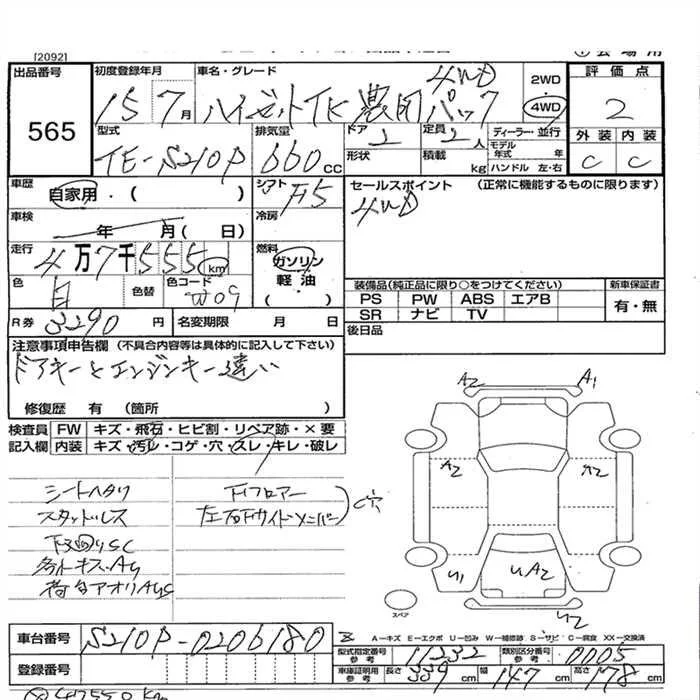 [2092]
出品番号
565
初度登録年月
15 7月
車名・グレード
ハイゼットTK 農用パック
4WD
2WD
4WD
評価点
2
外装 内装
C C
型式
TE-S210P
排気量
660cc
ドア
2
定員
2人
形状
積載
kg
ディーラー・並行
モデル年式 年
ハンドル 左・右
車歴
自家用・( )
シフト
F5
セールスポイント (正常に機能するものに限ります)
4WD
車検
年 月( 日)
冷房
走行
4万7千555km
燃料
ガソリン
軽油
( )
色
白
色替
色コード
W09
装備品(純正品に限り○をつけてください)
PS PW ABS エアB
SR ナビ TV
新車保証書
有・無
R券 3290円
名変期限 月 日
後日品
注意事項申告欄 (不具合内容等は具体的に記入して下さい)
ドアキーとエンジンキー違い
修復歴 有 (箇所 )
検査員記入欄
FW キズ・飛石・ヒビ割・リペア跡・×要
内装 キズ・汚レ・コゲ・穴・スレ・キレ・破レ
シートヘタリ
スタッドレス
下廻りSC
荷台アオリAUS
下フロアー
左右下サイドメンバー
C穴
A2 A1
A2 A2
U1 UA2
U2
スペア
A－キズ E－エクボ U－凹み W－補修跡 S－サビ C－腐食 XX－交換済
車台番号 S210P-0206180
登録番号
型式指定番号 参考 11232
類別区分番号 参考 0005
車庫証明用 参考 長さ 339cm 幅 147cm 高さ 178cm